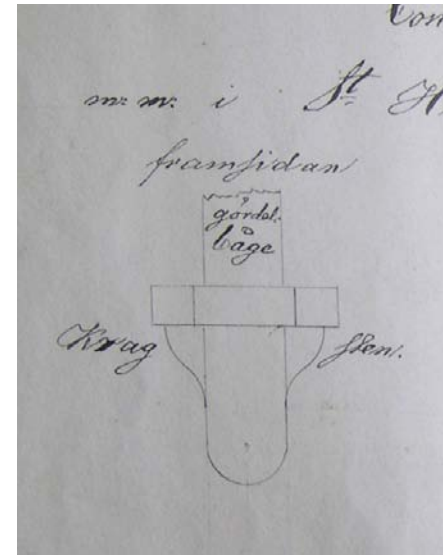 Con
m. m. i St H
framsidan
gördel-
båge
Krag sten.